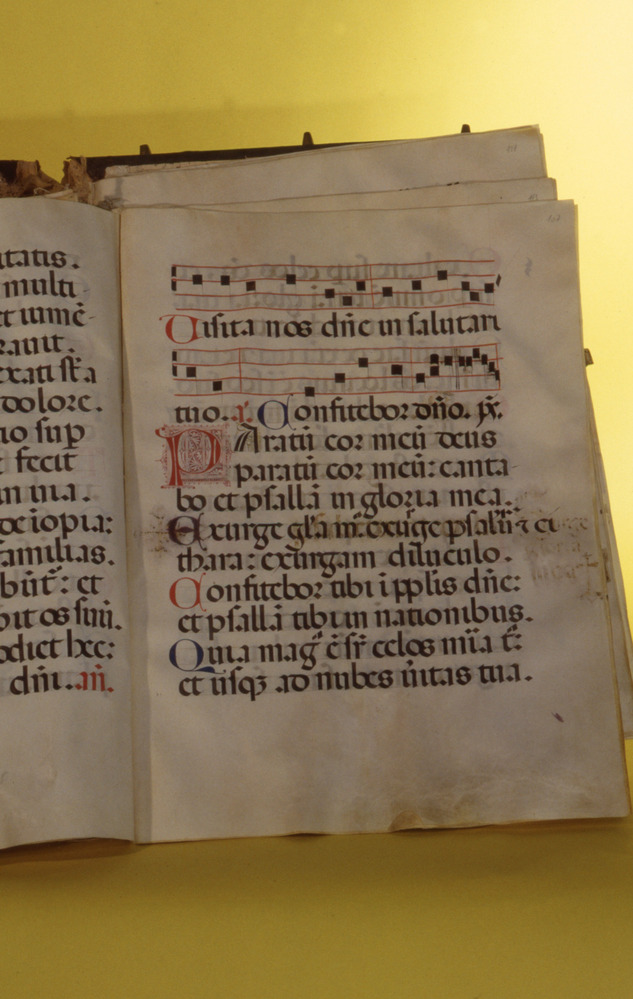 itatis.
multi
et iumē
rauit.
exati sr̄a
dolore.
no sup
fecit
in uia.
de īopia:
familias.
būt: et
pit os suū.
odiet hec:
dn̄i. an̄.
Uisita nos dn̄e in salutari
tuo. ã. Confitebor dn̄o. p̄s.
PAratū cor meū deus
paratū cor meū: canta
bo et psallā in gloria mea.
Exurge gl'a m̄. exurge psal'iū ⁊ ci
thara: exurgam diluculo.
Confitebor tibi ī pp̄lis dn̄e:
et psallā tibi in nationibus.
Quia maḡ ē sr̄ celos mīa t̄:
et usqꝫ ad nubes ūitas tua.